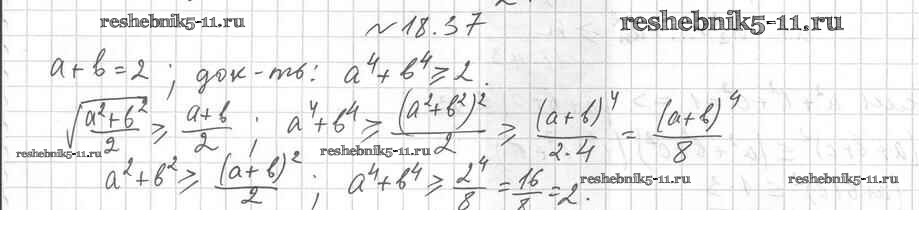 reshebnik5-11.ru
reshebnik5-11.ru
№ 18.37
a + b = 2 ; док-ть: a⁴ + b⁴ ≥ 2.
√((a² + b²)/2) ≥ (a + b)/2 ; a⁴ + b⁴ ≥ (a² + b²)²/2 ≥ (a + b)⁴/(2·4) = (a + b)⁴/8
reshebnik5-11.ru
reshebnik5-11.ru
a² + b² ≥ (a + b)²/2 ; a⁴ + b⁴ ≥ 2⁴/8 = 16/8 = 2.
reshebnik5-11.ru
reshebnik5-11.ru